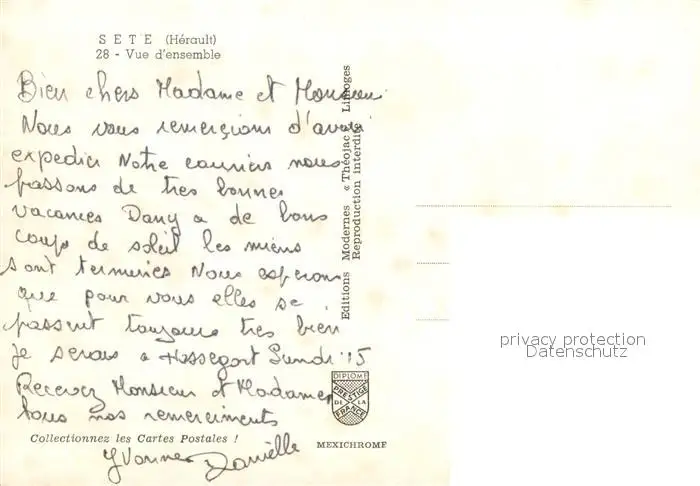 SETE (Hérault)
28 - Vue d'ensemble
Bien chers Madame et Monsieur
Nous vous remerçions d'avoir
expedier Notre courriers nous
passons de tres bonnes
vacances Dany a de bons
coup de soleil les miens
sont terminées Nous esperons
que pour vous elles se
passent toujours tres bien
je serais a Hossegort Lundi 15
Recevez Monsieur et Madame
tous nos remerciments
Yvonne Danielle
Collectionnez les Cartes Postales !
Editions Modernes « Théojac » Limoges
Reproduction interdite
DIPLOME
PRESTIGE
DE LA
FRANCE
MEXICHROME
privacy protection
Datenschutz